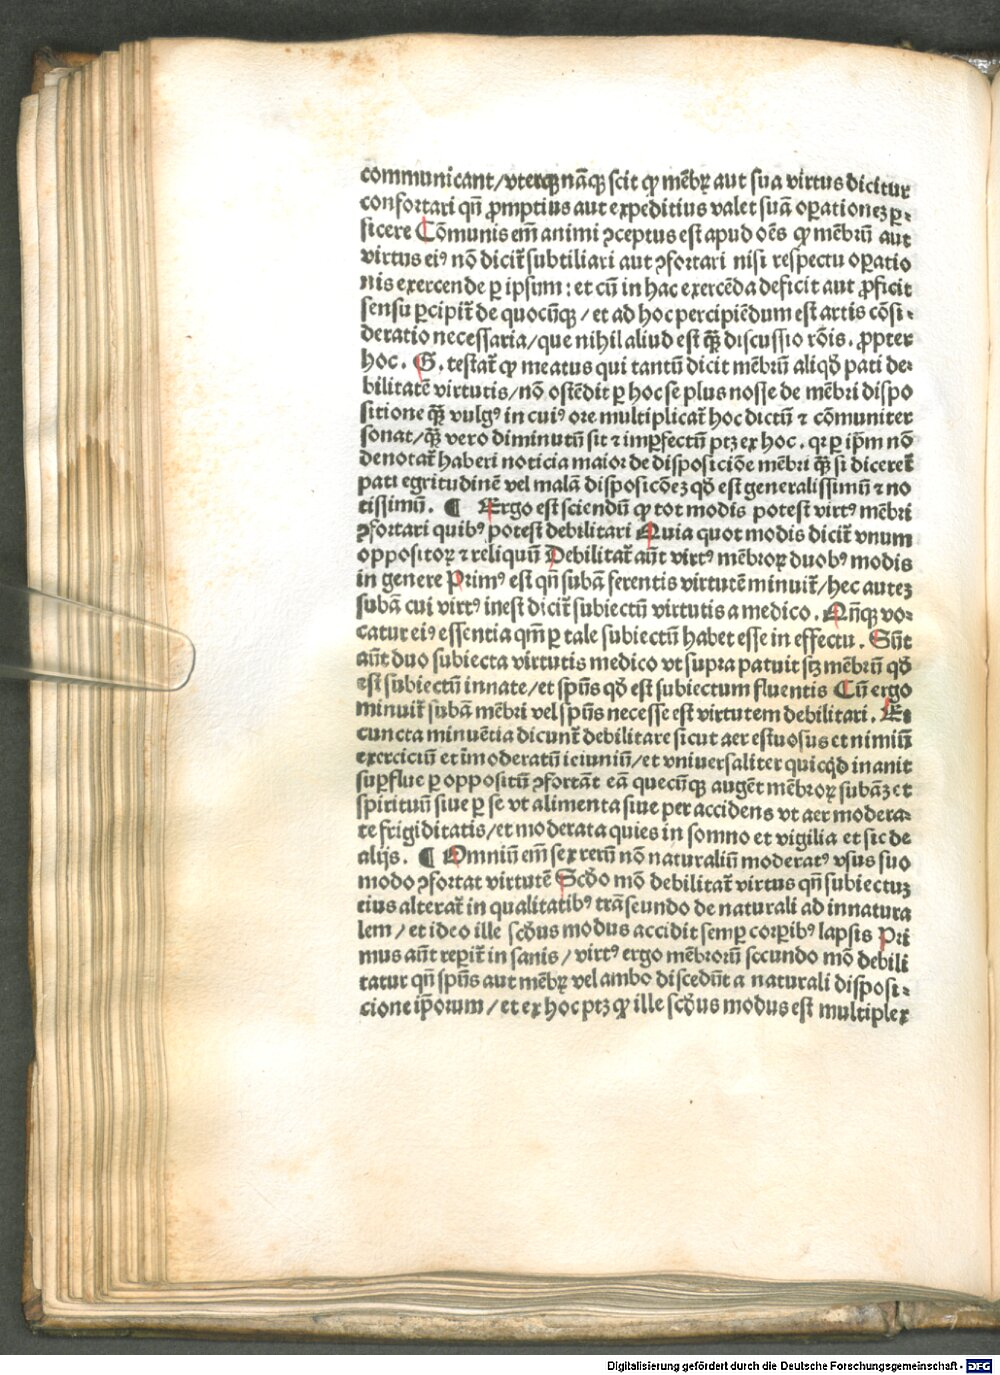 communicant/vterqꝫ nāqꝫ scit ꝙ mēbꝝ aut sua virtus dicitur
confortari qn̄ ꝓmptius aut expeditius valet suā oꝑationeꝫ ꝑ⸗
ficere Cōmunis em̄ animi ↄceptus est apud oēs ꝙ mēbrū aut
virtus eiꝰ nō dicit̄ subtiliari aut ↄfortari nisi respectu oꝑatio
nis exercende ꝑ ipsum: et cū in hac exercēda deficit aut ꝓficit
sensu ꝑcipit̄ de quocūqꝫ/et ad hoc percipiēdum est artis cōsi⸗
deratio necessaria/que nihil aliud est qꝫ̄ discussio rōis. ꝓpter
hoc. G. testat̄ ꝙ meatus qui tantū dicit mēbrū aliqd̄ pati de⸗
bilitatē virtutis/nō ostēdit ꝑ hoc se plus nosse de mēbri dispo
sitione qꝫ̄ vulgꝰ in cuiꝰ ore multiplicat̄ hoc dictū ⁊ cōmuniter
sonat/qꝫ̄ vero diminutū sit ⁊ imꝑfectū ptꝫ ex hoc. qꝛ ꝑ ip̄m nō
denotat̄ haberi noticia maior de disposiciōe mēbri qꝫ̄ si diceret̄
pati egritudinē vel malā disposicōeꝫ qd̄ est generalissimū ⁊ no
tissimū. ¶ Ergo est sciendū ꝙ tot modis potest virtꝰ mēbri
ↄfortari quibꝰ potest debilitari Quia quot modis dicit̄ vnum
oppositoꝝ ⁊ reliquū Debilitat̄ aūt virtꝰ mēbroꝝ duobꝰ modis
in genere Primꝰ est qn̄ subā ferentis virtutē minuit̄/hec auteꝫ
subā cui virtꝰ inest dicit̄ subiectū virtutis a medico. Qn̄qꝫ vo⸗
catur eiꝰ essentia qm̄ ꝑ tale subiectū habet esse in effectu. Sūt
aūt duo subiecta virtutis medico vt supra patuit sꝫ mēbrū qd̄
est subiectū innate/et sp̄us qd̄ est subiectum fluentis Cū ergo
minuit̄ subā mēbri vel sp̄us necesse est virtutem debilitari. Et
cuncta minuētia dicunt̄ debilitare sicut aer estuosus et nimiū
exerciciū et īmoderatū ieiuniū/et vniuersaliter quicqd̄ inanit
suꝑflue ꝑ oppositū ↄfortāt eā quecūqꝫ augēt mēbroꝝ subāꝫ et
spirituū siue ꝑ se vt alimenta siue per accidens vt aer modera⸗
te frigiditatis/et moderata quies in somno et vigilia et sic de
alijs. ¶ Omniū em̄ sex rerū nō naturaliū moderatꝰ vsus suo
modo ↄfortat virtutē Scd̄o mō debilitat̄ virtus qn̄ subiectuꝫ
eius alterat̄ in qualitatibꝰ trāseundo de naturali ad innatura
lem/et ideo ille scd̄us modus accidit semꝑ corꝑibꝰ lapsis Pri
mus aūt reꝑit̄ in sanis/virtꝰ ergo mēbrorū secundo mō debili
tatur qn̄ sp̄us aut mēbꝝ vel ambo discedūt a naturali disposi⸗
cione ip̄orum/et ex hoc ptꝫ ꝙ ille scd̄us modus est multiplex
Digitalisierung gefördert durch die Deutsche Forschungsgemeinschaft - DFG